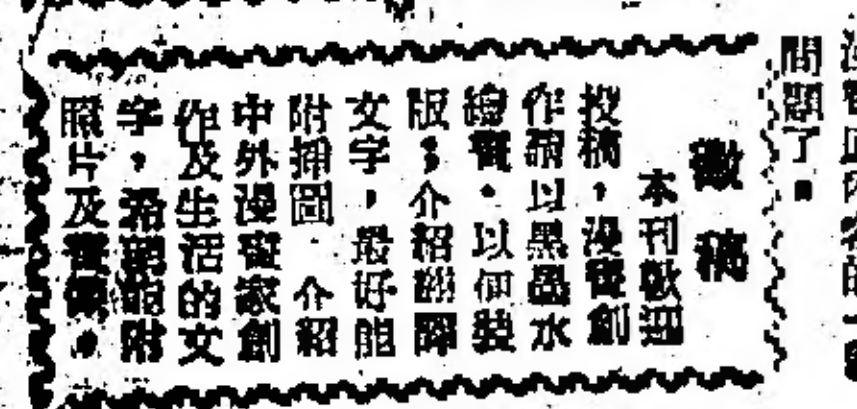 問題了。
徵稿
本刊歡迎
投稿，漫畫創
作請以黑墨水
繪畫。以便製
版；介紹翻譯
文字，最好能
附插圖。介紹
中外漫畫家創
作及生活的文
字，希望能附
照片及畫像。